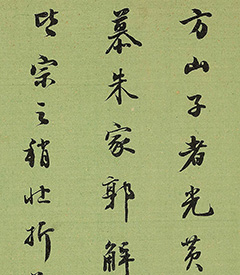 方山子者光黄
慕朱家郭解
皆宗之稍壮折